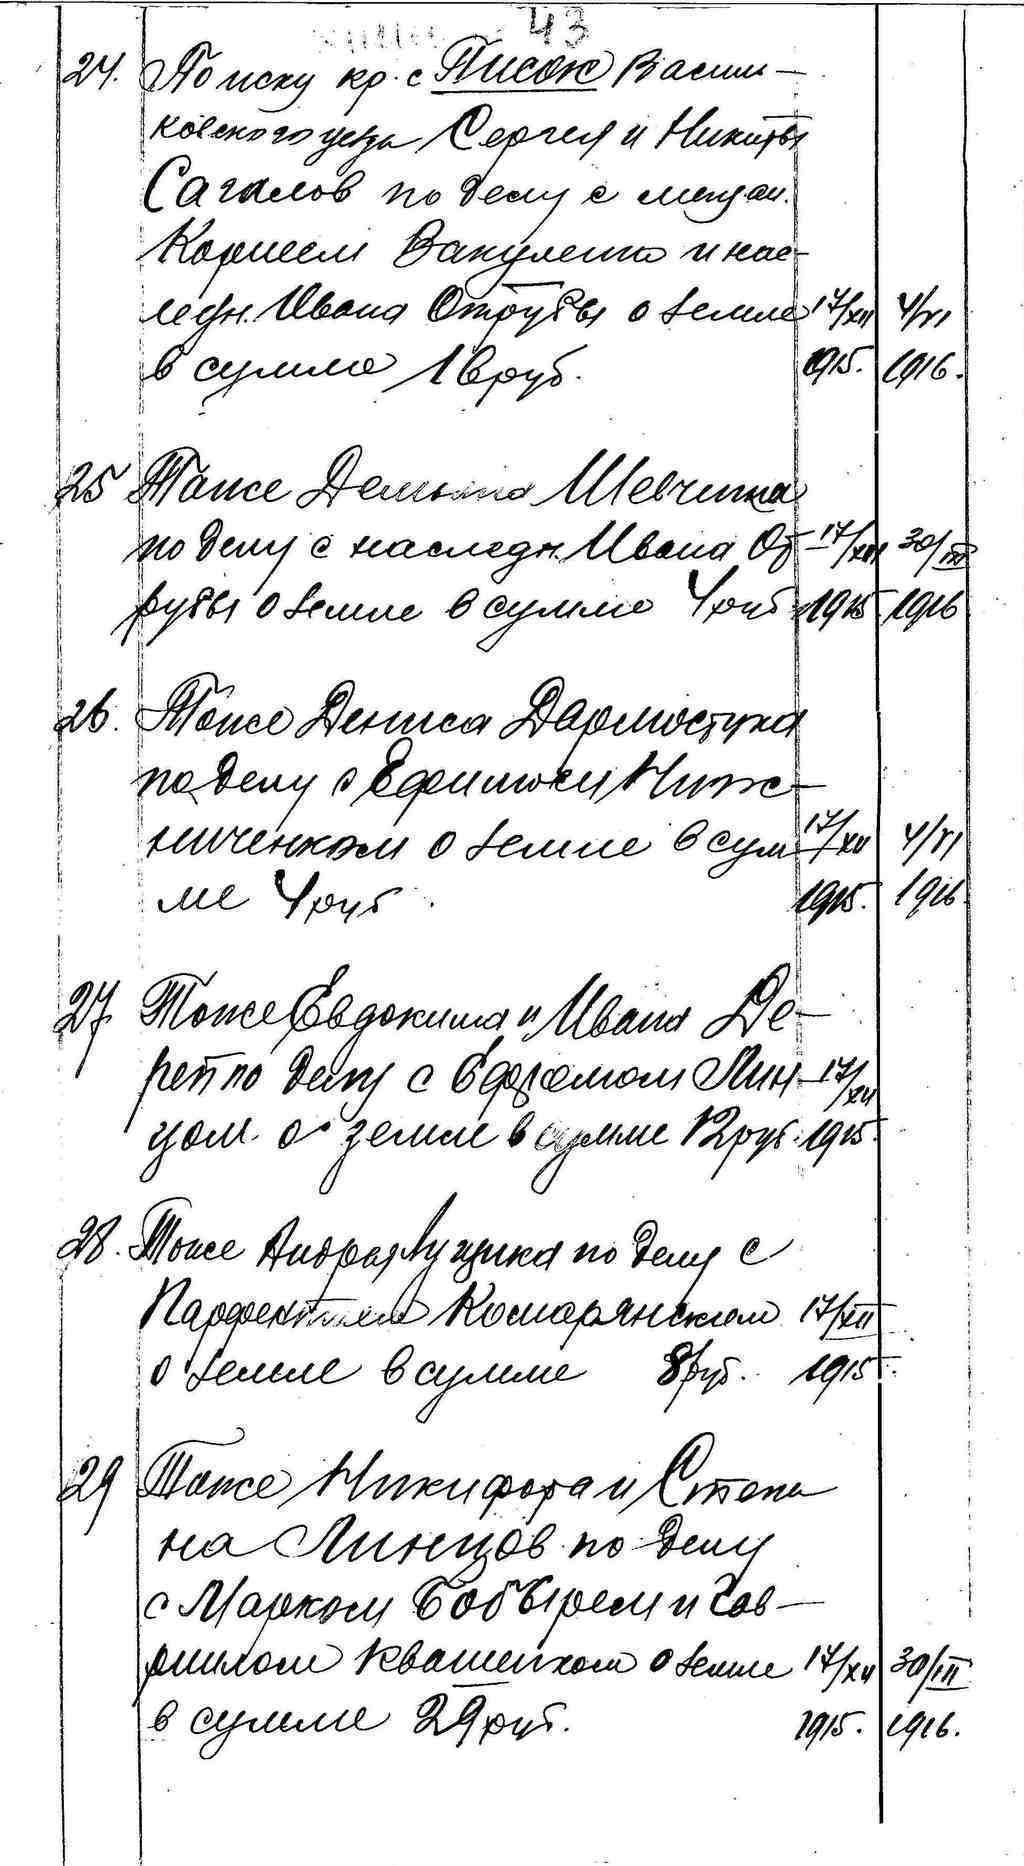 43
24. По иску кр. с Писок Васили-
ковского уезда Сергея и Никиты
Сагалов по делу с мещан.
Корнеем Вакуленко и нас-
ледн. Ивана Отрубы о земле 17/XII 4/VI
в сумме 16 руб. 1915. 1916.
25 Тоже Демьяна Шевчика
по делу с наследн. Ивана От- 17/XII 30/III
рубы о земле в сумме 4 руб. 1915 1916
26. Тоже Дениса Дармостука
по делу с Ефимом Ниж-
ниченком о земле в сум- 17/XII 4/VI
ме 4 руб. 1915. 1916
27 Тоже Евдокима и Ивана Де-
реп по делу с Ефремом Лин- 17/XII
цом о земле в сумме 12 руб. 1915.
28. Тоже Андрея Луцика по делу с
Комарянским 17/XII
о земле в сумме 8 руб. 1915
29 Тоже Никифора и Степа
на Линцов по делу
с Марком Бобырем и Гав-
рилом Квашенком о земле 17/XII 30/III
в сумме 29 руб. 1915. 1916.